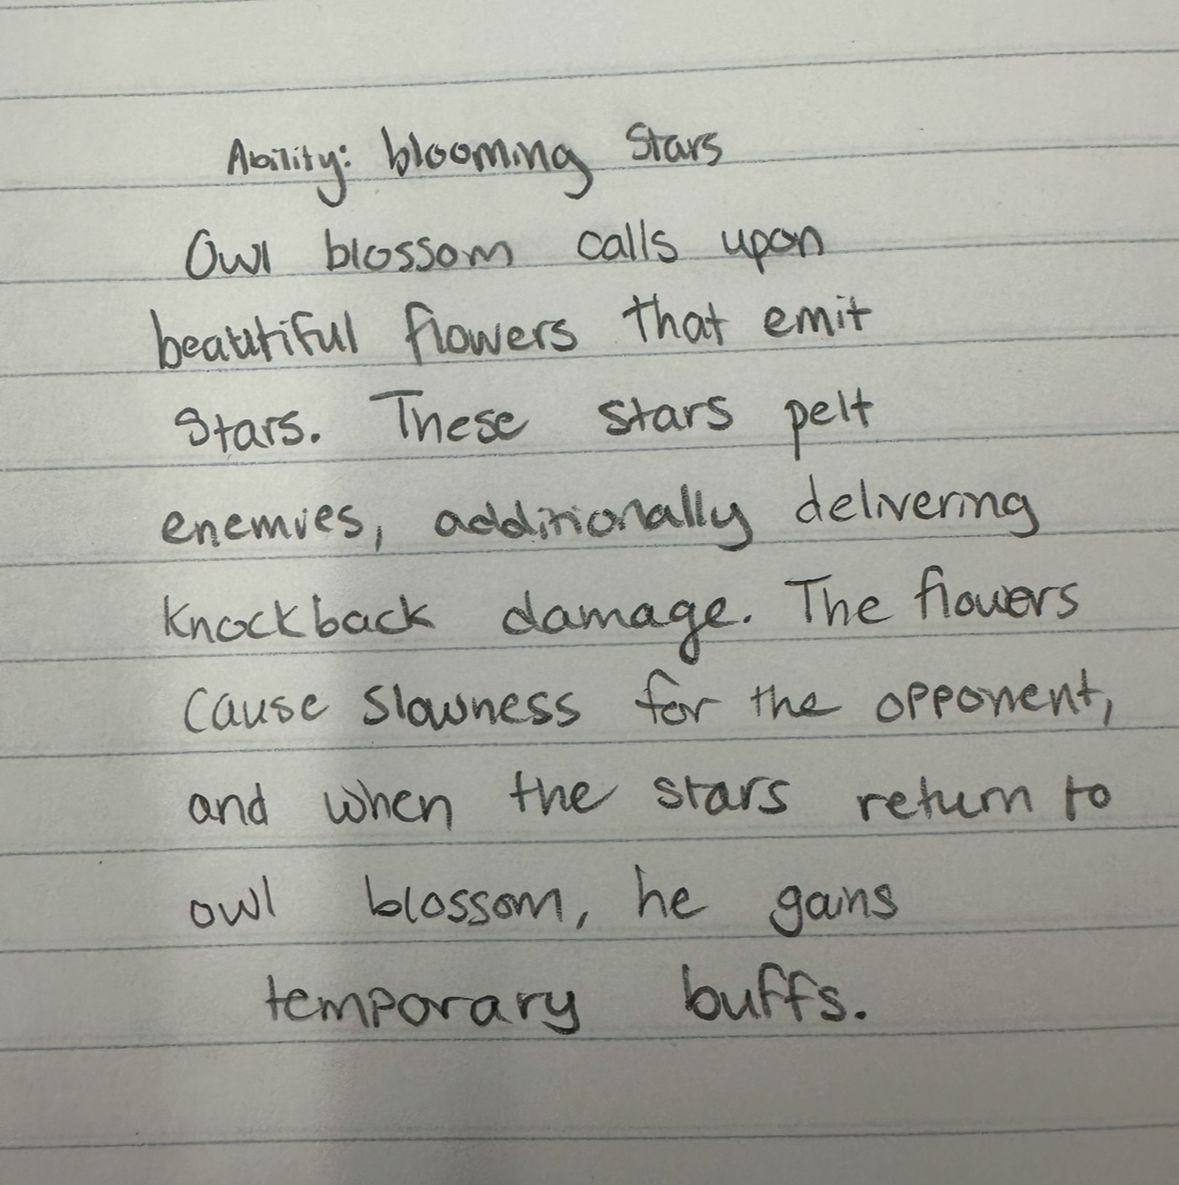 Ability: blooming Stars
Owl blossom calls upon
beautiful flowers that emit
Stars. These stars pelt
enemies, additionally delivering
knockback damage. The flowers
cause slowness for the opponent,
and when the stars return to
owl blossom, he gains
temporary buffs.